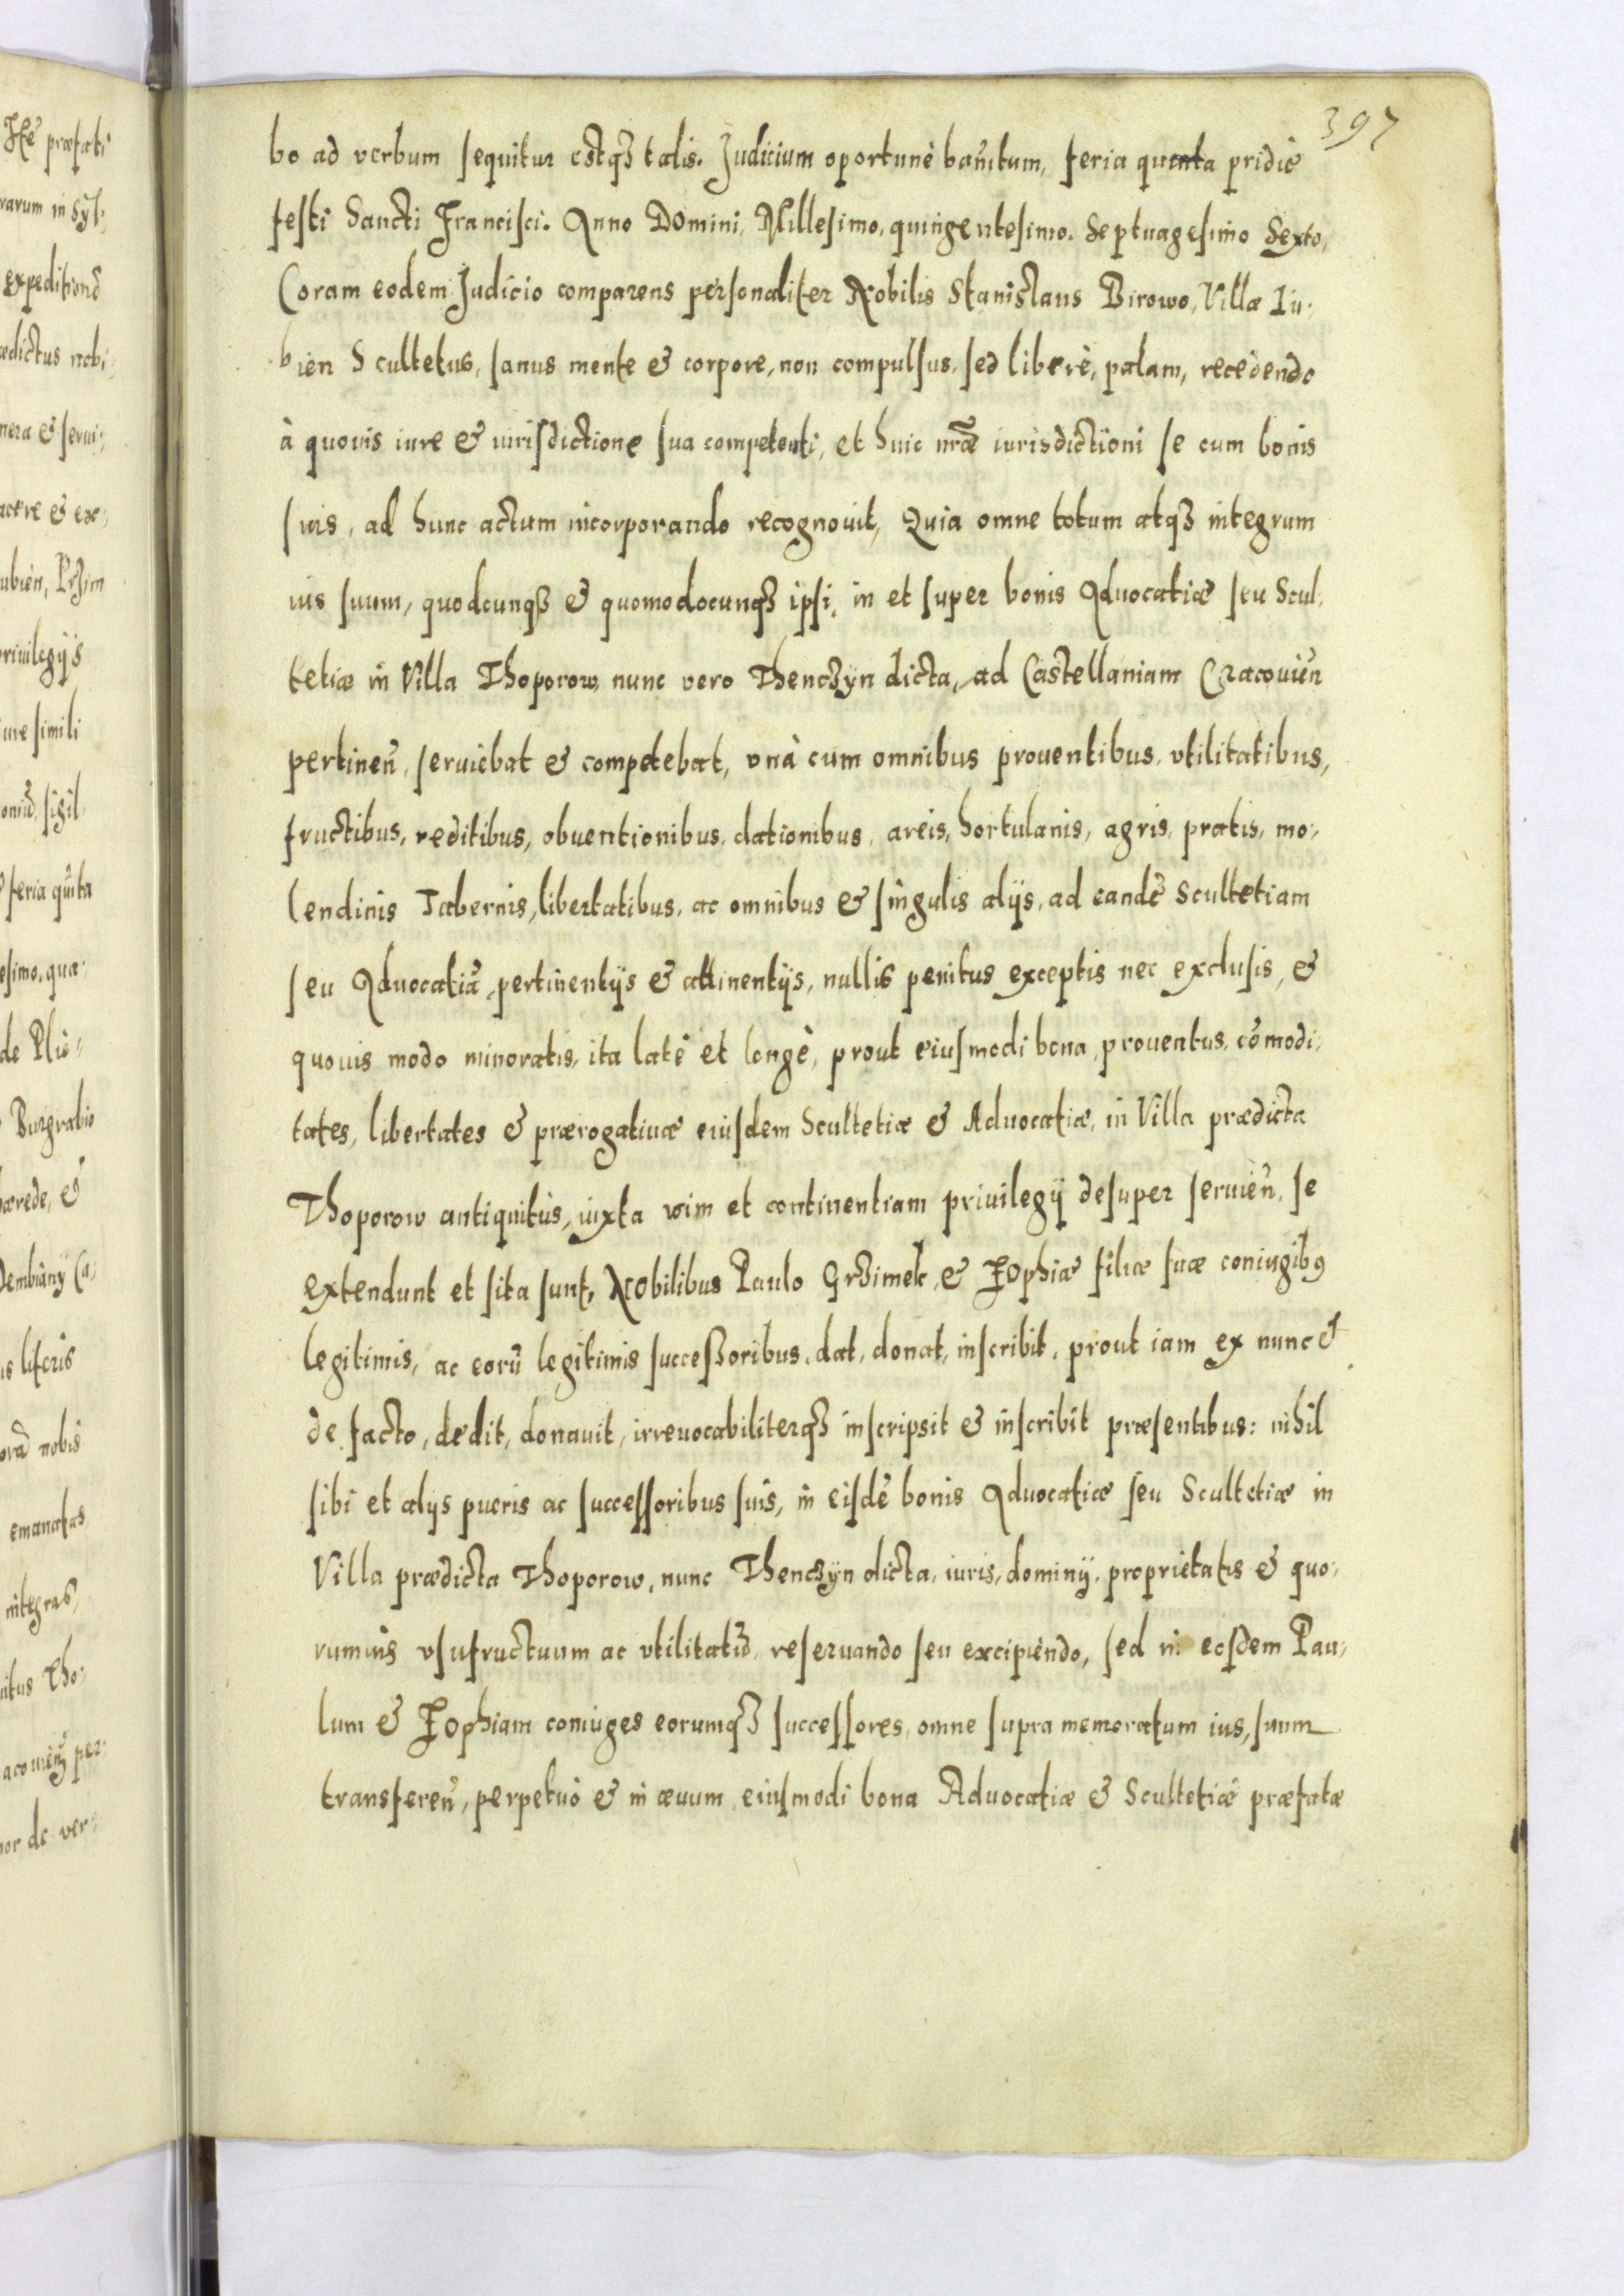 397
bo ad verbum sequitur estqȝ talis. Judicium oportunè bañitum, feria quinta pridiè
festi Sancti Francisci. Anno Domini, Millesimo, quingentesimo. Septuagesimo Sexto,
Coram eodem Judicio comparens personaliter Nobilis Stanislaus Birowo, Villæ Lu:
bien Scultetus, sanus mente & corpore, non compulsus, sed liberè, palam, recedendo
à quovis iure & iurisdictione sua competenti, et huic nr̃æ iurisdictioni se cum bonis
suis, ad hunc actum incorporando recognovit, Quia omne totum atqȝ integrum
ius suum, quodcunqȝ & quomodocunqȝ ipsi, in et super bonis Advocatiæ seu Scul:
tetiæ in Villa Thoporow, nunc vero Thenczyn dicta, ad Castellaniam Cracovień
pertineñ, serviebat & competebat, vnà cum omnibus proventibus, vtilitatibus,
fructibus, reditibus, obventionibus, dationibus, areis, hortulanis, agris, pratis, mo:
lendinis Tabernis, libertatibus, ac omnibus & singulis alijs, ad eandẽ Scultetiam
seu Advocatiã, pertinentijs & attinentijs, nullis penitus exceptis nec exclusis, &
quovis modo minoratis, ita latè et longè, prout eiusmodi bona, proventus, cõmodi:
tates, libertates & prærogativæ eiusdem Scultetiæ & Advocatiæ, in Villa prædicta
Thoporow antiquitùs, iuxta vim et continentiam privilegij desuper servień, se
extendunt et sita sunt, Nobilibus Paulo Grzimek, & Zophiæ filiæ suæ coniugibꝰ
legitimis, ac eorũ legitimis successoribus, dat, donat, inscribit, prout iam ex nunc &
de facto, dedit, donavit, irrevocabiliterqȝ inscripsit & inscribit præsentibus: nihil
sibi et alijs pueris ac successoribus suis, in eisdẽ bonis Advocatiæ seu Scultetiæ in
Villa prædicta Thoporow, nunc Thenczyn dicta, iuris, dominij, proprietatis & quo:
rumvis vsufructuum ac vtilitatũ, reservando seu excipiendo, sed in eosdem Pau:
lum & Zophiam coniuges eorumqȝ successores, omne supra memoratum ius, suum
transfereñ, perpetuò & in ævum, eiusmodi bona Advocatiæ & Scultetiæ præfatæ